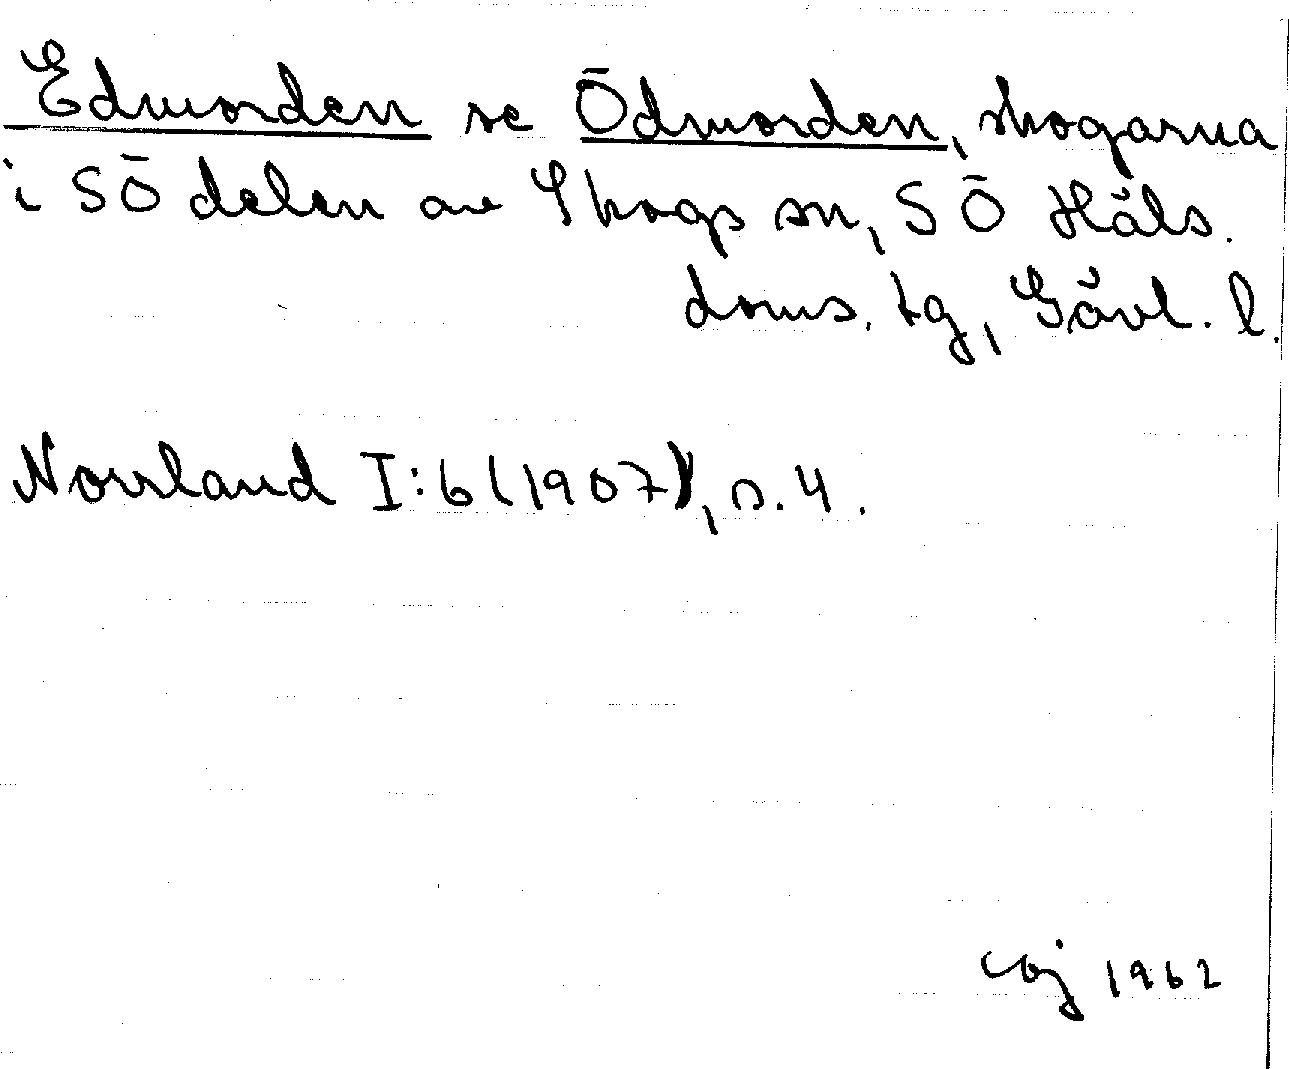 Edmorden se Ödmorden, skogarna
i SÖ delen av Skogs sn, SÖ Häls.
doms. tg, Gävl. l.
Norrland I:6 (1907), s. 4.
1962